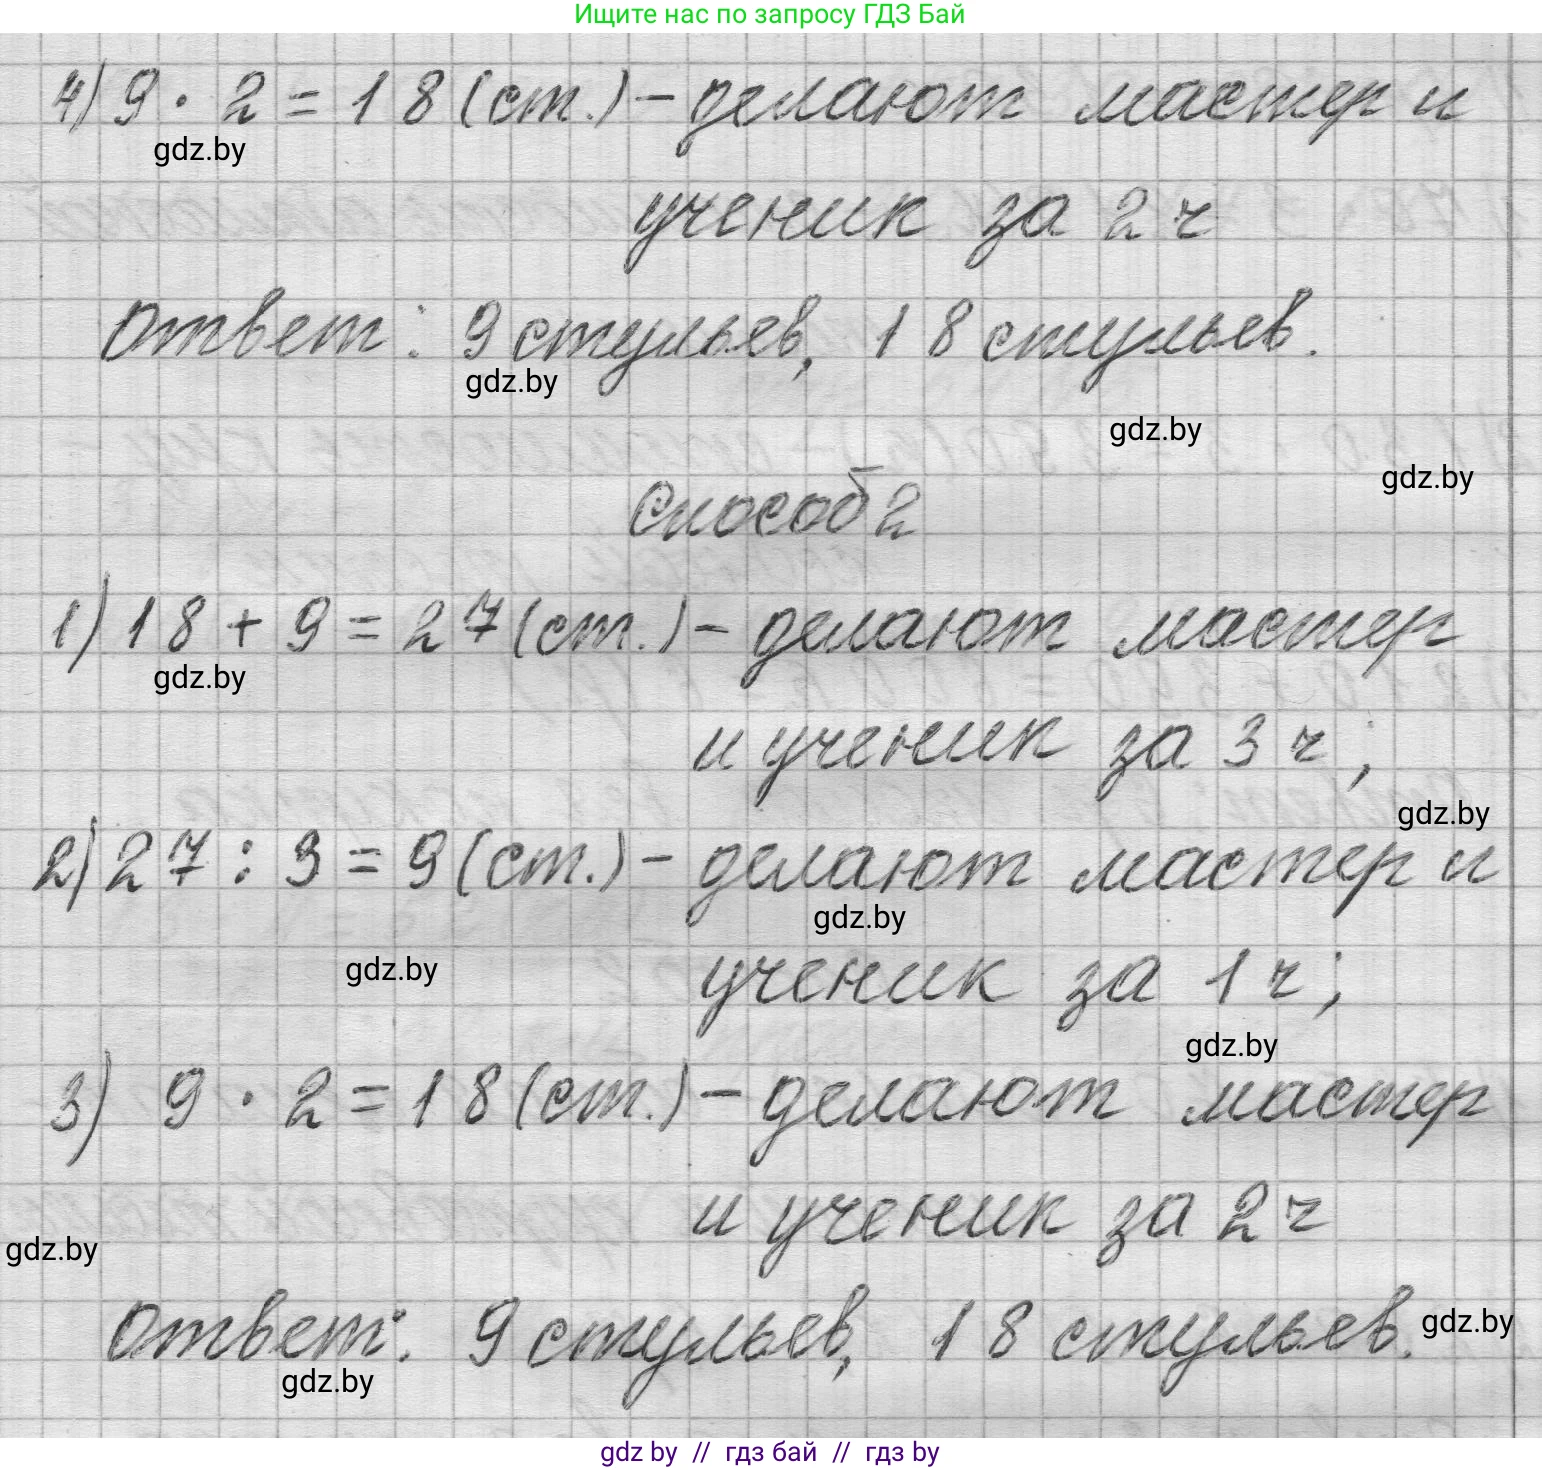 Ищите нас по запросу ГДЗ Бай
4) 9 · 2 = 18 (ст.) – делают мастер и
gdz.by
ученик за 2 ч
Ответ: 9 стульев, 18 стульев.
gdz.by
gdz.by
gdz.by
Способ 2
1) 18 + 9 = 27 (ст.) – делают мастер
gdz.by
и ученик за 3 ч;
gdz.by
2) 27 : 3 = 9 (ст.) – делают мастер и
gdz.by
ученик за 1 ч;
gdz.by
gdz.by
3) 9 · 2 = 18 (ст.) – делают мастер
и ученик за 2 ч
gdz.by
Ответ: 9 стульев, 18 стульев.
gdz.by
gdz.by
gdz by // гдз бай // гдз by